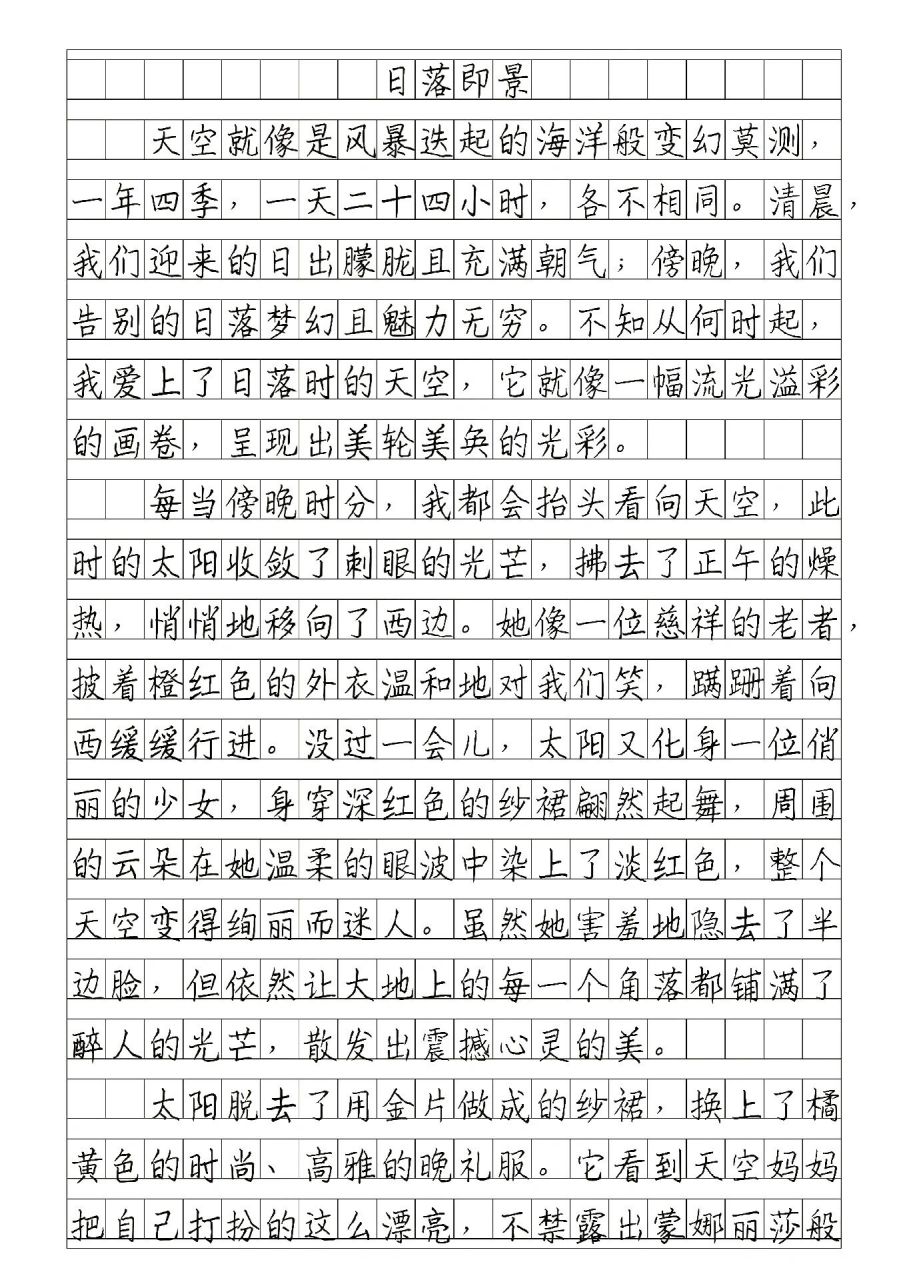 日落即景
天空就像是风暴迭起的海洋般变幻莫测，
一年四季，一天二十四小时，各不相同。清晨，
我们迎来的日出朦胧且充满朝气；傍晚，我们
告别的日落梦幻且魅力无穷。不知从何时起，
我爱上了日落时的天空，它就像一幅流光溢彩
的画卷，呈现出美轮美奂的光彩。
每当傍晚时分，我都会抬头看向天空，此
时的太阳收敛了刺眼的光芒，拂去了正午的燥
热，悄悄地移向了西边。她像一位慈祥的老者，
披着橙红色的外衣温和地对我们笑，蹒跚着向
西缓缓行进。没过一会儿，太阳又化身一位俏
丽的少女，身穿深红色的纱裙翩然起舞，周围
的云朵在她温柔的眼波中染上了淡红色，整个
天空变得绚丽而迷人。虽然她害羞地隐去了半
边脸，但依然让大地上的每一个角落都铺满了
醉人的光芒，散发出震撼心灵的美。
太阳脱去了用金片做成的纱裙，换上了橘
黄色的时尚、高雅的晚礼服。它看到天空妈妈
把自己打扮的这么漂亮，不禁露出蒙娜丽莎般